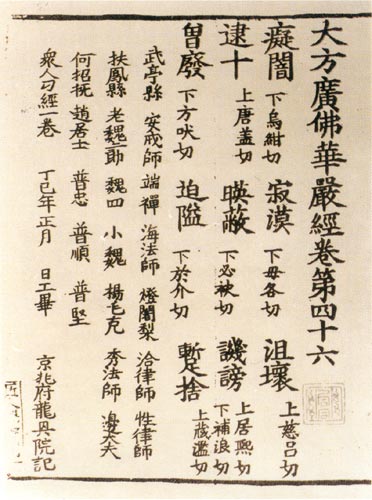 大方廣佛華嚴經卷第四十六
癡闇 下烏紺切 寂漠 下毋各切 沮壞 上慈呂切
逮十 上唐盖切 暎蔽 下必袂切 譏謗 上居熙切 下補浪切
曽廢 下方吠切 迫隘 下於介切 蹔捨 上蔵濫切
武亭縣 安戒師 端禪 海法師 燈闍梨 洽律師 性律師
扶鳳縣 老魏 魏四 小魏 楊毛克 秀法師 邊大夫
何招撫 趙居士 普忠 普順 普堅
衆人刁經一卷 丁巳年正月 日工畢 京兆府龍興院記